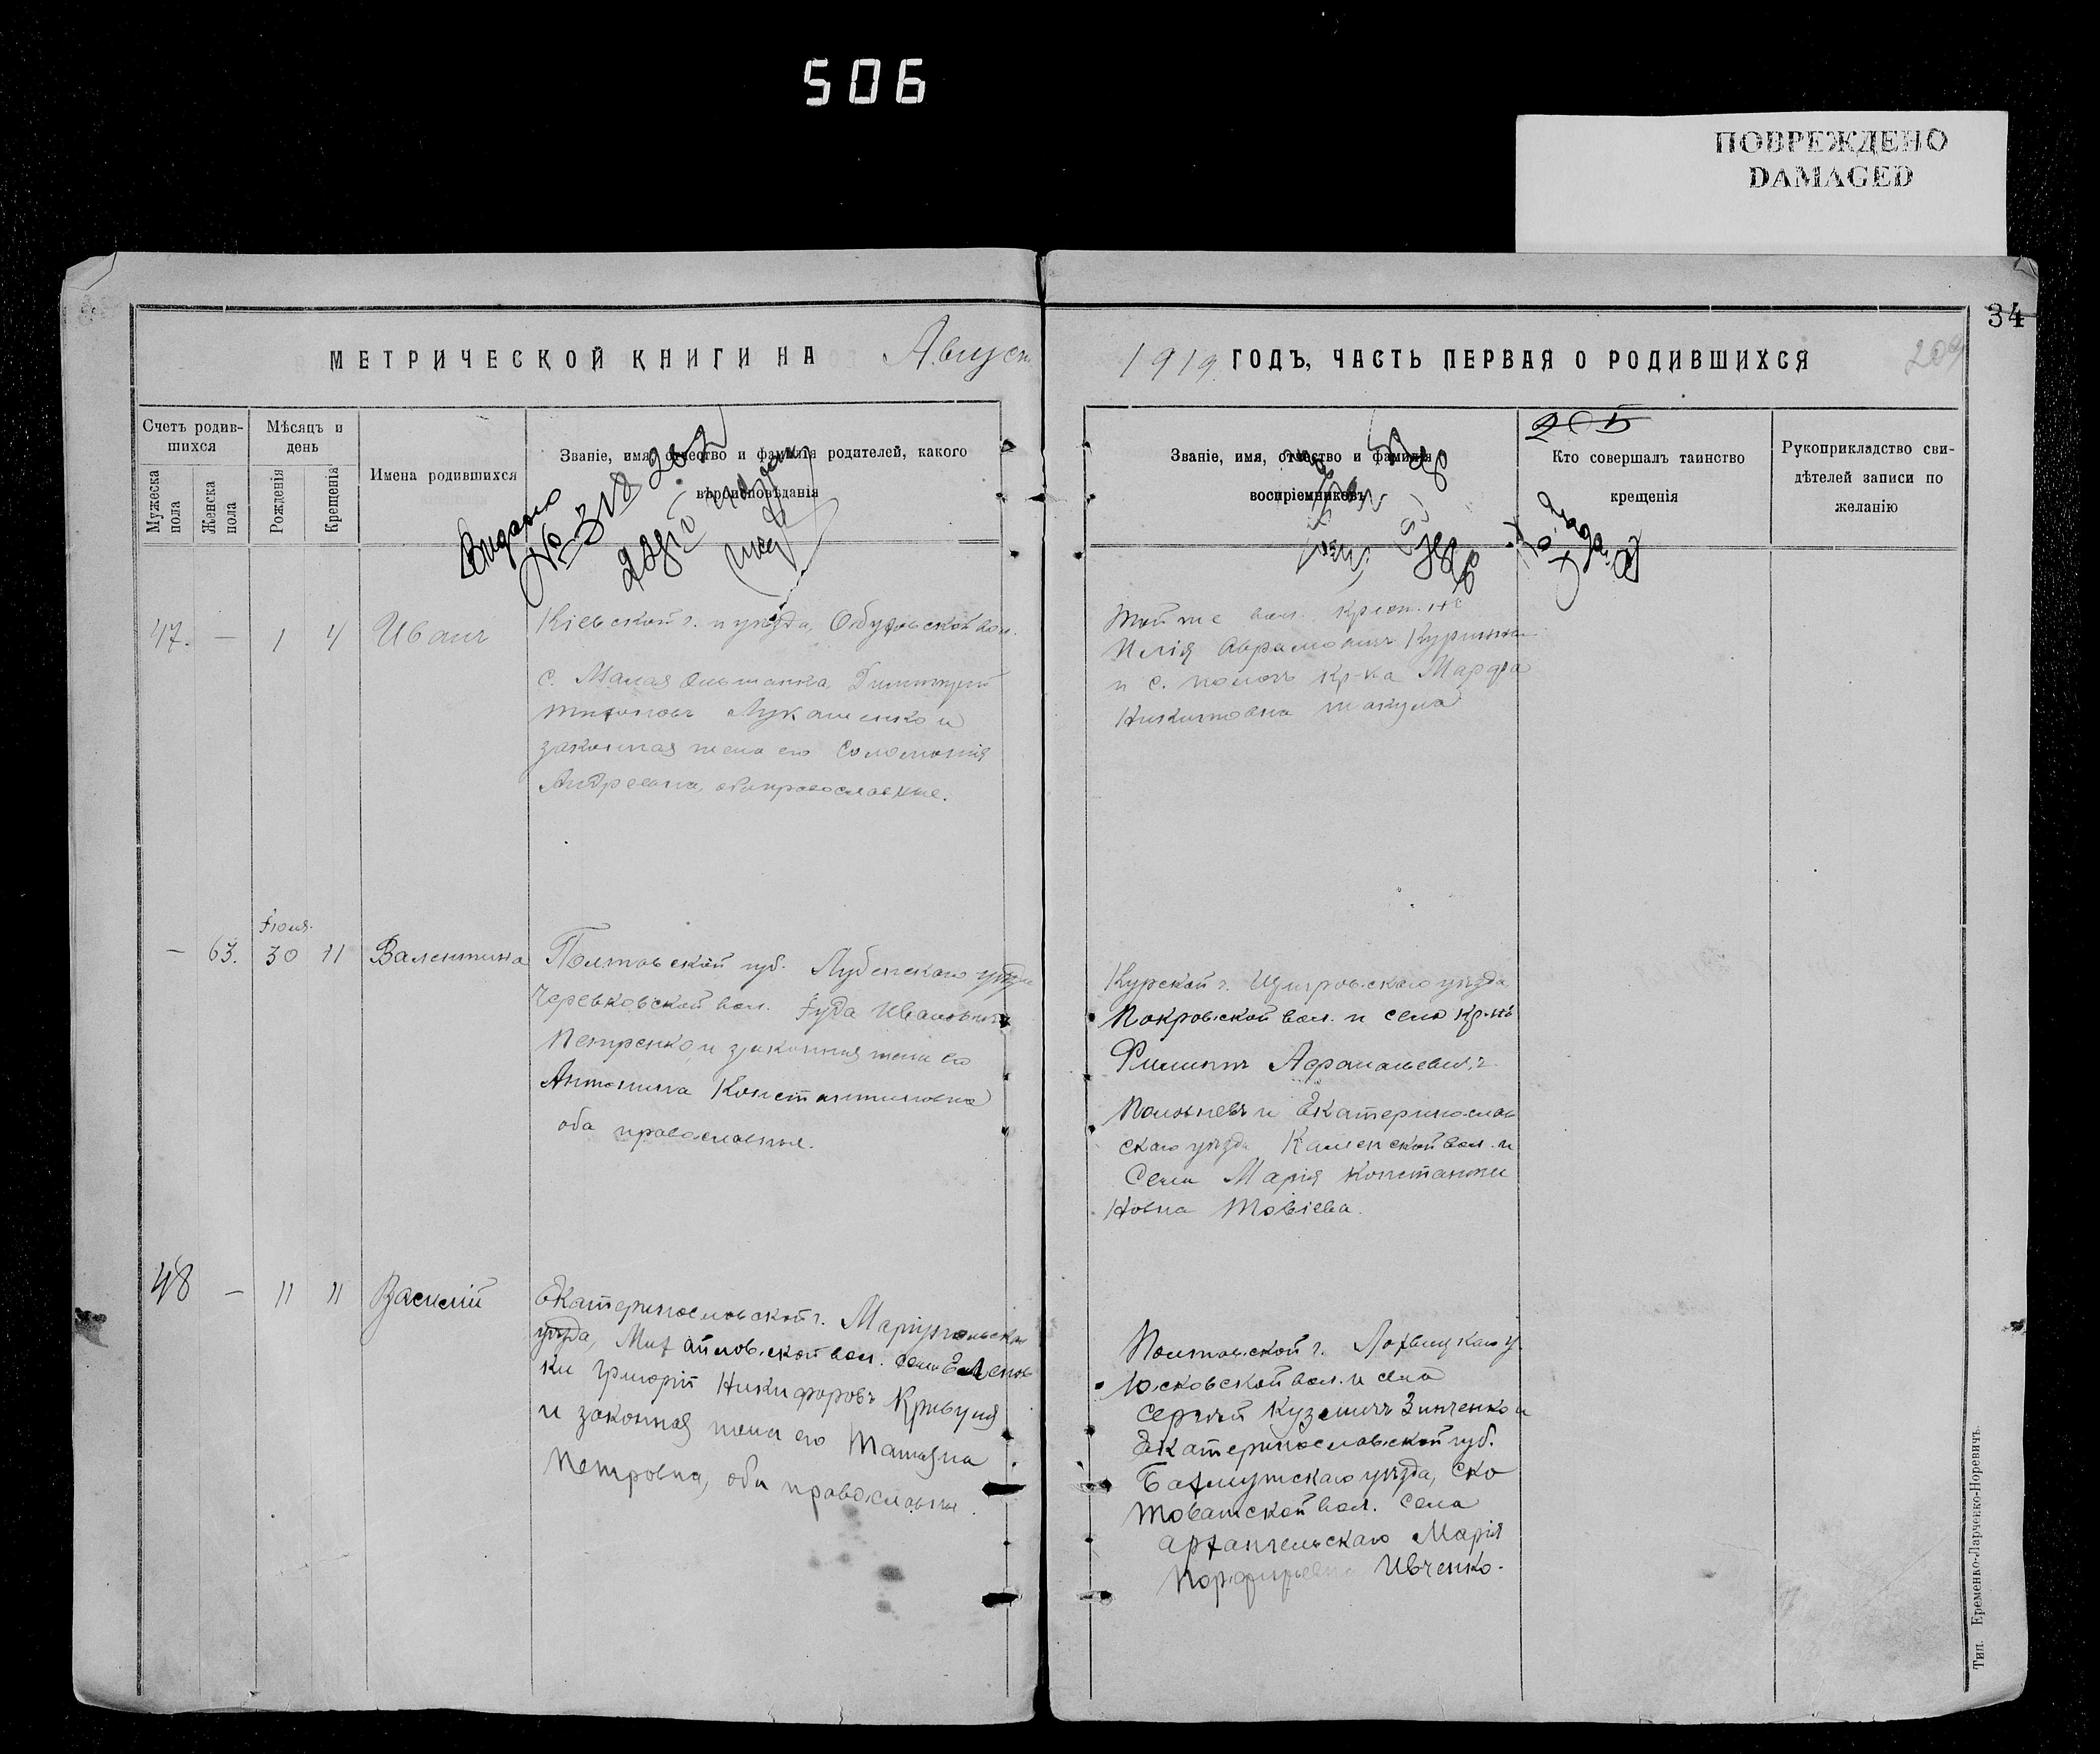 506
ПОВРЕЖДЕНО
DAMAGED
34
МЕТРИЧЕСКОЙ КНИГИ НА Август
1919 ГОДЪ, ЧАСТЬ ПЕРВАЯ О РОДИВШИХСЯ
209
205
Счетъ родив-
шихся
Мужеска
пола
Женска
пола
Мѣсяцъ и
день
Рожденія
Крещенія
Имена родившихся
Званіе, имя, отчество и фамилія родителей, какого
вѣроисповѣданія
Званіе, имя, отчество и фамилія
воспріемниковъ
Кто совершалъ таинство
крещенія
Рукоприкладство сви-
дѣтелей записи по
желанію
Видано
47. — 1 4 Иванъ
Кіевской г. и уѣзда, Обуховской вол.
с. Малая Ольшанка, Димитрій
Лукашенко и
законная жена его Соломонія
Андреевна, оба православные.
Той же вол. крест-нъ
Илія Аврамовичъ
и с. кр-ка Марфа
Никитовна
Іюля
— 63. 30 11 Валентина
Полтавской губ. Лубенскаго уѣзда
Черевковской вол. Іуда Ивановичъ
Петренко и законная жена его
Антонина Константиновна
оба православные.
Курской г. Щигровскаго уѣзда
Покровской вол. и села кр-нъ
Филиппъ Афанасьевичъ
и Екатеринослав
скаго уѣзда Каменской вол. и
села Марія Константи
новна Товіева.
48 — 11 11 Василій
Екатеринославской г. Маріупольскаго
уѣзда, Михайловской вол. села Еленов
ки Григорій Никифоровъ Кривуля
и законная жена его Татьяна
Петровна, оба православные.
Полтавской г. Лохвицкаго у.
Юсковской вол. и села
Сергѣй Кузьмичъ Зинченко и
Екатеринославской губ.
Бахмутскаго уѣзда, Ско
товатской вол. села
Архангельскаго Марія
Порфирьевна Ивченко.
Тип. Еременко-Ларченко-Норевичъ.